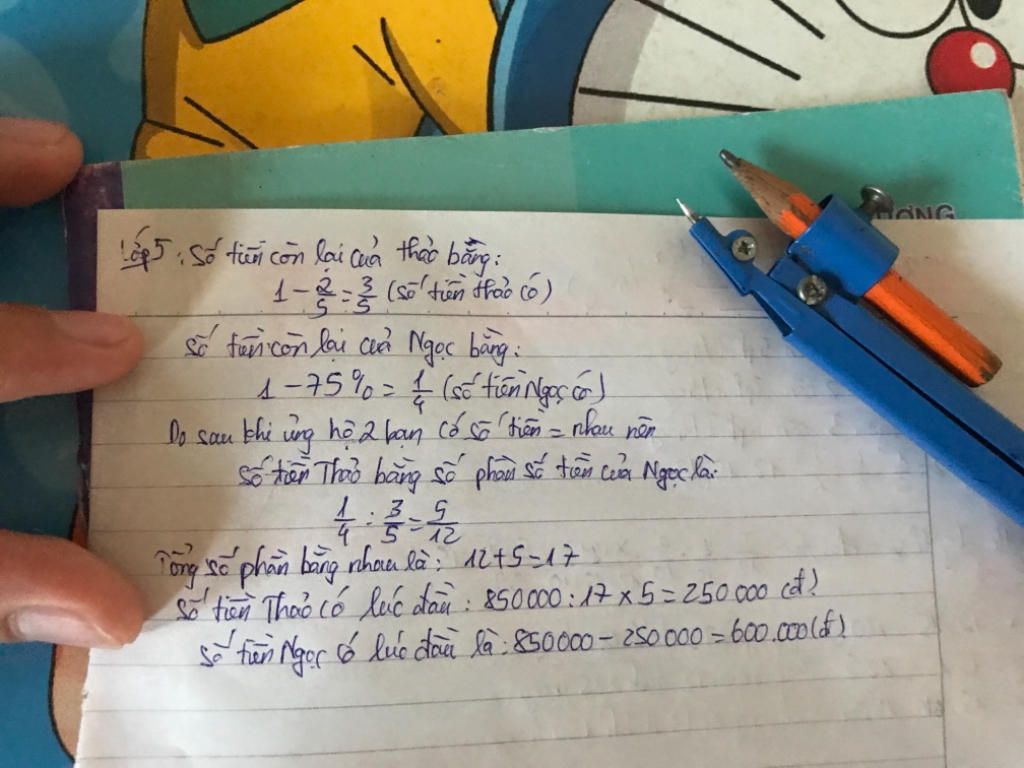 ƯƠNG
Lớp 5: Số tiền còn lại của thảo bằng:
1 - 2/5 = 3/5 (số tiền thảo có)
Số tiền còn lại của Ngọc bằng:
1 - 75% = 1/4 (số tiền Ngọc có)
Do sau khi ủng hộ 2 bạn có số tiền = nhau nên
Số tiền Thảo bằng số phần số tiền của Ngọc là:
1/4 : 3/5 = 5/12
Tổng số phần bằng nhau là: 12 + 5 = 17
Số tiền Thảo có lúc đầu: 850000 : 17 x 5 = 250000 (đ)
Số tiền Ngọc có lúc đầu là: 850000 - 250000 = 600.000 (đ)